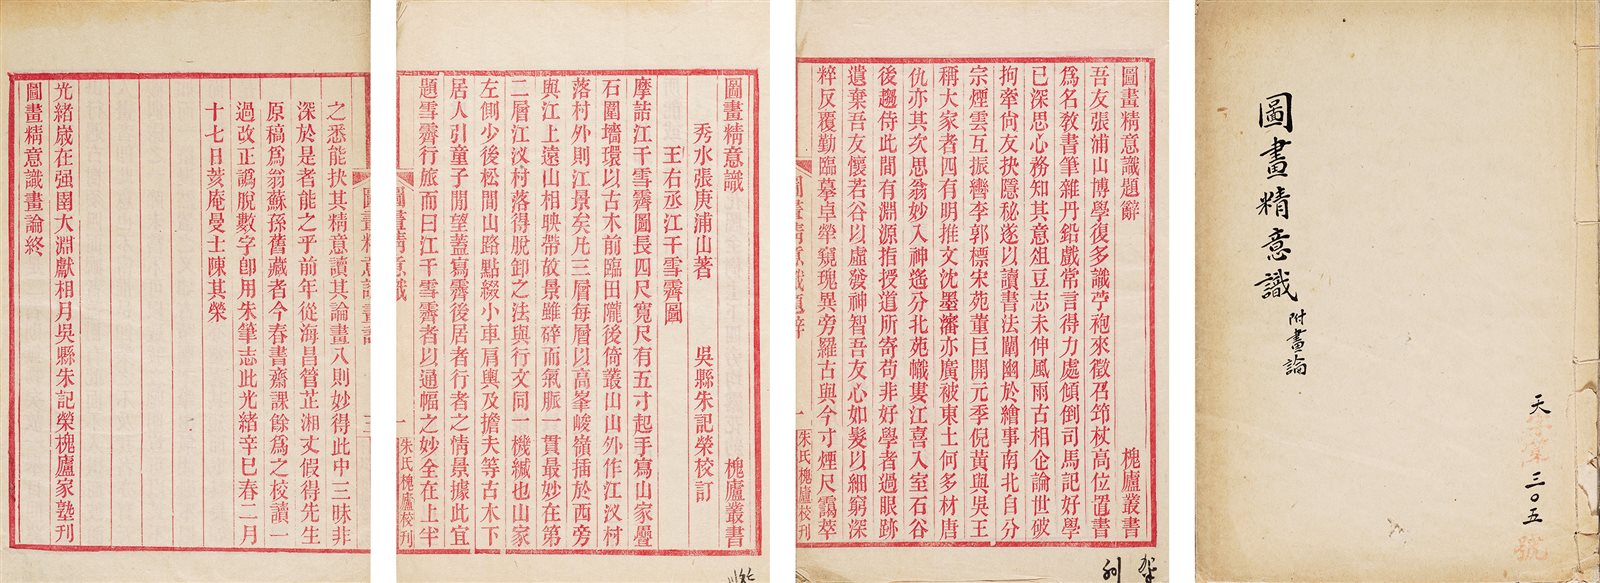 圖畫精意識
附畫論
天
三〇五
號
圖畫精意識題辭
槐廬叢書
吾友張浦山博學復多識苧袍來徵召筇杖高位置書
爲名教書筆雜丹鉛戲常言得力處傾倒司馬記好學
已深思心務知其意俎豆志未伸風雨古相企論世破
拘牽尙友抉隱秘遂以讀書法闡幽於繪事南北自分
宗煙雲互振轡李郭標宋苑董巨開元季倪黃與吳王
稱大家者四有明推文沈墨瀋亦廣被東土何多材唐
仇亦其次思翁妙入神遙分北苑幟婁江喜入室石谷
後趨侍此間有淵源指授道所寄苟非好學者過眼跡
遺棄吾友懷若谷以虛發神智吾友心如髮以細窮深
粹反覆勤臨摹卓犖窺瑰異旁羅古與今寸煙尺靄萃
圖畫精意識題辭
一
朱氏槐廬校刊
圖畫精意識
槐廬叢書
秀水張庚浦山著
吳縣朱記榮校訂
王右丞江千雪霽圖
摩詰江千雪霽圖長四尺寬尺有五寸起手寫山家壘
石圍墻環以古木前臨田隴後倚叢山山外作江汊村
落村外則江景矣凡三層每層以高峯峻嶺插於西旁
與江上遠山相映帶故景雖碎而氣脈一貫最妙在第
二層江汊村落得脫卸之法與行文同一機緘也山家
左側少後松間山路點綴小車肩輿及擔夫等古木下
居人引童子閒望蓋寫霽後居者行者之情景據此宜
題雪霽行旅而曰江千雪霽者以通幅之妙全在上半
圖畫精意識
一
朱氏槐廬校刊
之悉能抉其精意讀其論畫八則妙得此中三昧非
深於是者能之乎前年從海昌管芷湘丈假得先生
原稿爲翁蘇孫舊藏者今春書齋課餘爲之校讀一
過改正譌脫數字卽用朱筆志此光緒辛巳春二月
十七日荄庵旻士陳其榮
光緒歲在强圉大淵獻相月吳縣朱記榮槐廬家塾刊
圖畫精意識畫論終